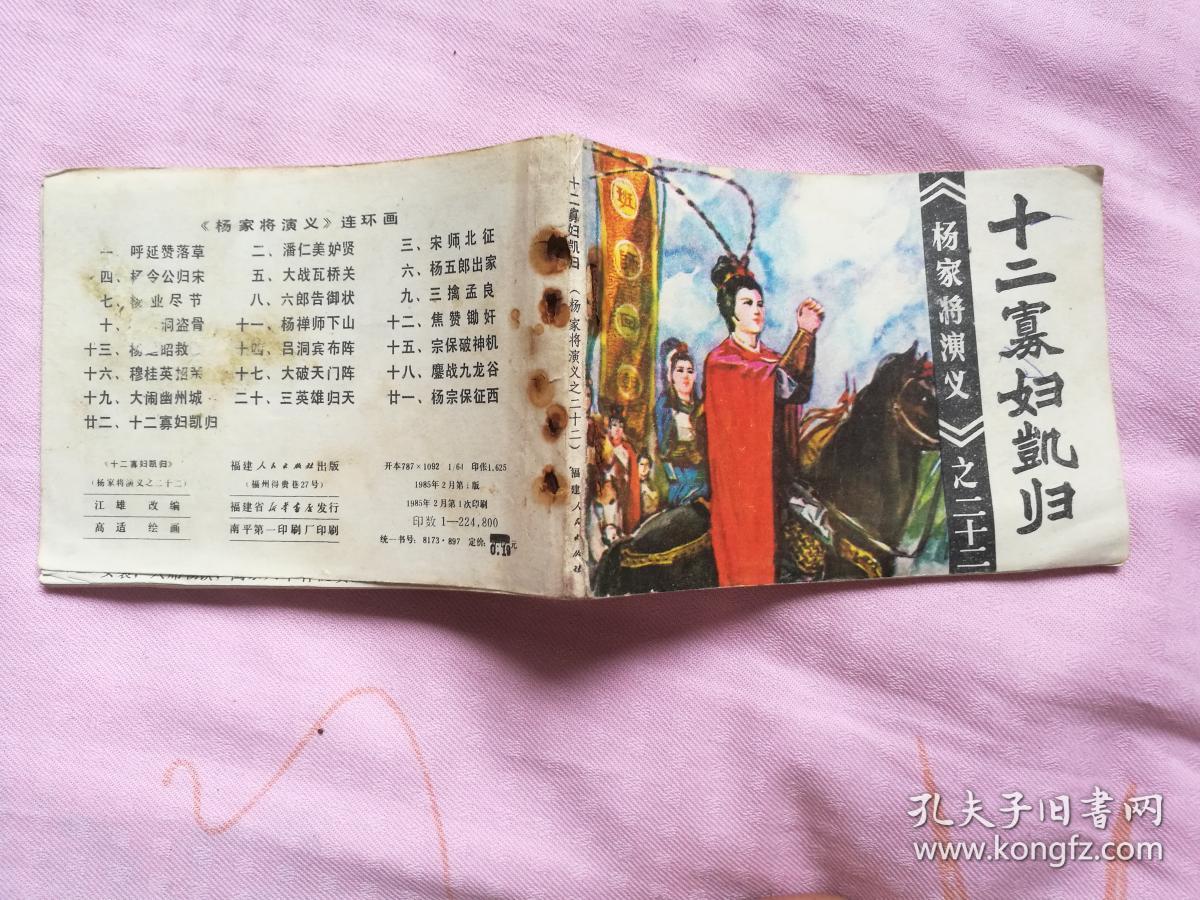 《杨家将演义》连环画
一、呼延赞落草 二、潘仁美妒贤 三、宋师北征
四、 令公归宋 五、大战瓦桥关 六、杨五郎出家
七、 业尽节 八、六郎告御状 九、三擒孟良
十、 洞盗骨 十一、杨禅师下山 十二、焦赞锄奸
十三、杨 昭救 十四、吕洞宾布阵 十五、宗保破神机
十六、穆桂英招 十七、大破天门阵 十八、鏖战九龙谷
十九、大闹幽州城 二十、三英雄归天 廿一、杨宗保征西
廿二、十二寡妇凯归
《十二寡妇凯归》
(杨家将演义之二十二)
江雄 改编
高适 绘画
福建人民出版社出版
(福州得贵巷27号)
福建省新华书店发行
南平第一印刷厂印刷
开本787×1092 1/64 印张1.625
1985年2月第1版
1985年2月第1次印刷
印数1—224,800
统一书号:8173·897 定价: 元
十二寡妇凯归(杨家将演义之二十二) 福建人民出版社
班
回
《杨家将演义》之二十二
十二寡妇凯归
孔夫子旧书网
www.kongfz.com